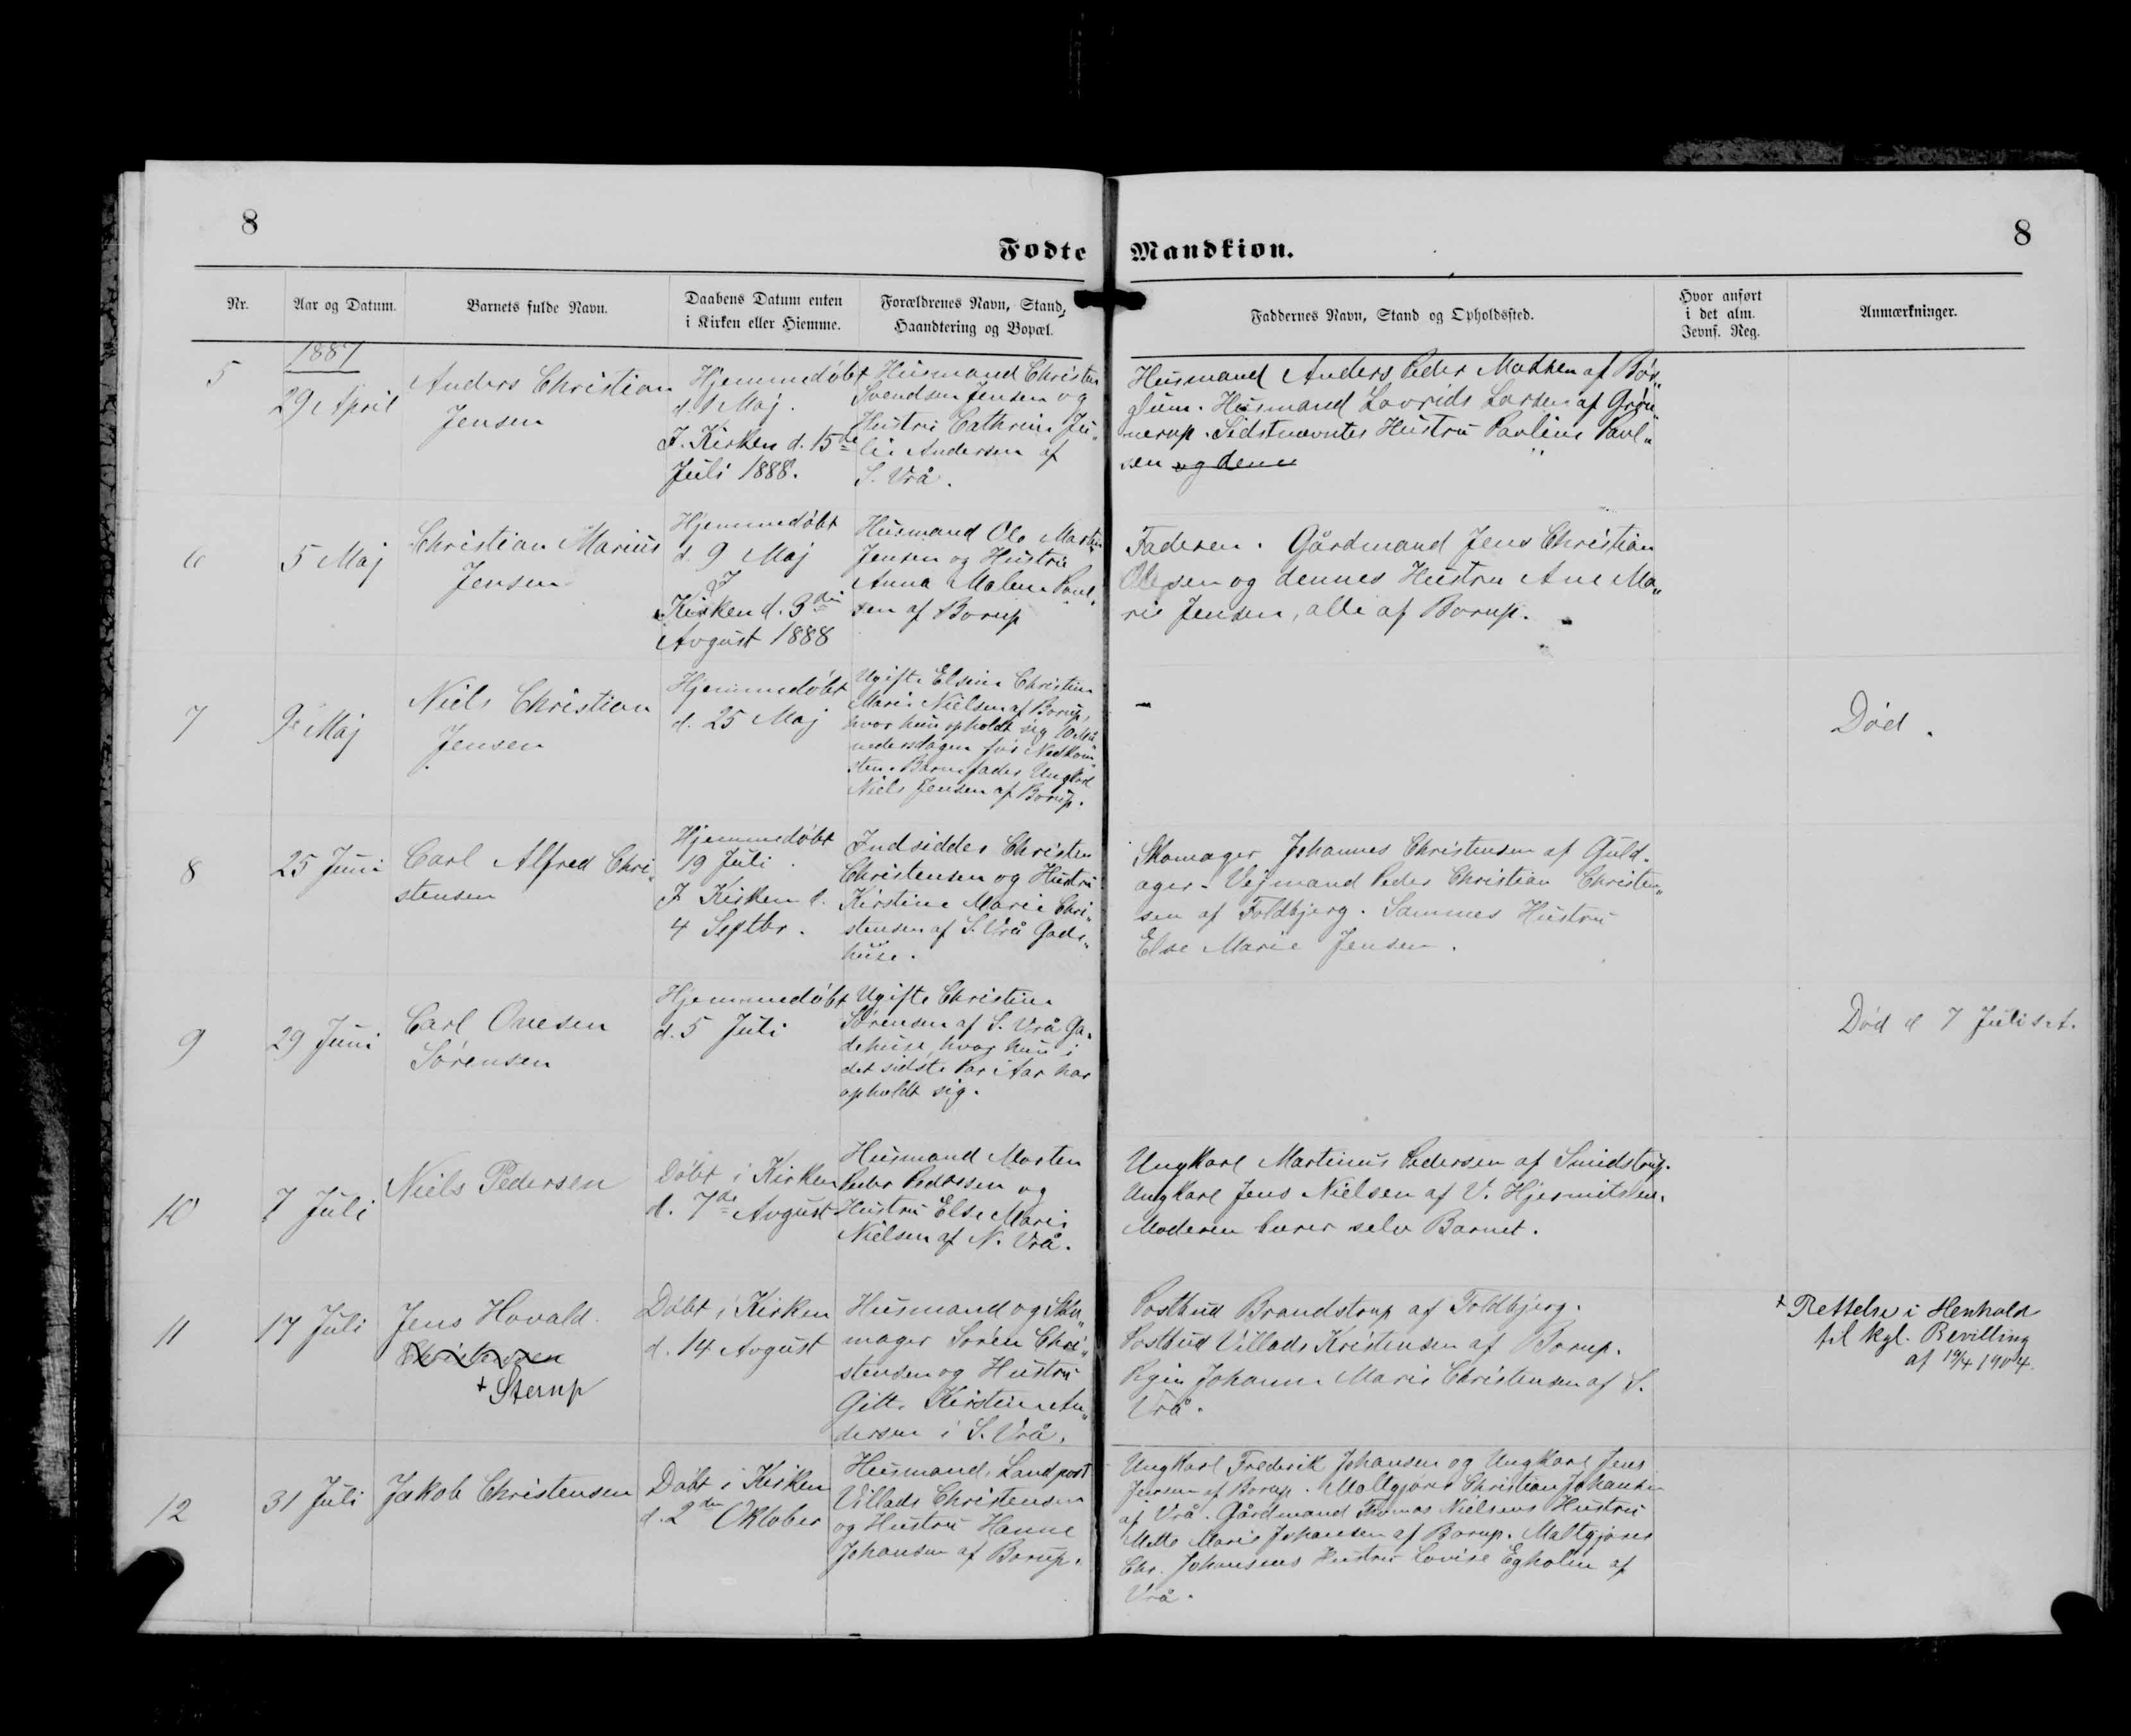 8
8
Fødte Mandkiøn.
Nr.
Aar og Datum.
Barnets fulde Navn.
Daabens Datum enten
i Kirken eller Hiemme.
Forældrenes Navn, Stand,
Haandtering og Bopæl.
Faddernes Navn, Stand og Opholdssted.
Hvor anført
i det alm.
Jevnf. Reg.
Anmærkninger.
5
1887
29 April
Anders Christian
Jensen
Hjemmedøbt
d. 1 Maj.
I. Kirken d. 15de
Juli 1888.
Husmand Christen
Svendsen Jensen og
Hustru Cathrine Ju„
lie Andersen af
S. Vrå.
Husmand Anders Peder Madsen af Bør„
glum. Husmand Lavrids Larsen af Grøn„
nerup. Sidstnævntes Hustru Pauline Paul„
sen og denne
6
5 Maj
Christian Marius
Jensen
Hjemmedøbt
d. 9 Maj
I
Kirken d. 3die
Avgust 1888
Husmand Ole Martin
Jensen og Hustru
Anna Malene Poul„
sen af Borup
Faderen. Gårdmand Jens Christian
Olesen og dennes Hustru Ane Ma„
rie Jensen, alle af Borup.
7
9de Maj
Niels Christian
Jensen
Hjemmedøbt
d. 25 Maj
Ugifte Elsine Christine
Marie Nielsen af Borup,
hvor hun opholdt sig 10 Må„
nedersdagen før Nedkom„
sten. Barnefader Ungkarl
Niels Jensen af Borup.
–
Død.
8
25 Juni
Carl Alfred Chri„
stensen
Hjemmedøbt
19 Juli.
I Kirken d.
4 Septbr.
Indsidder Christen
Christensen og Hustru
Kirstine Marie Chri„
stensen af S. Vrå Gade„
huse.
Skomager Johannes Christensen af Guld„
ager. Vejmand Peder Christian Christen„
sen af Foldbjerg. Sammes Hustru
Else Marie Jensen.
9
29 Juni
Carl Ovesen
Sørensen
Hjemmedøbt
d. 5 Juli
Ugifte Christine
Sørensen af S. Vrå Ga„
dehuse, hvor hun i
det sidste Par i Aar har
opholdt sig.
Død d 7 Juli s. A.
10
7 Juli
Niels Pedersen
Døbt i Kirken
d. 7de Avgust
Husmand Morten
Peder Pedersen og
Hustru Else Marie
Nielsen af N. Vrå.
Ungkarl Martinus Pedersen af Smidstrup.
Ungkarl Jens Nielsen af V. Hjermitslev.
Moderen bærer selv Barnet.
11
17 Juli
Jens Hovald
Christensen
+ Sterup
Døbt i Kirken
d. 14 Avgust
Husmand og Sko„
mager Søren Chri„
stensen og Hustru
Gitte Kirstine An„
dersen i S. Vrå.
Postbud Brandstrup af Foldbjerg.
Postbud Villads Kristensen af Borup.
Pigen Johanne Marie Christensen af S.
Vrå.
+ Rettelse i Henhold
til kgl. Bevilling
af 19/4 1904.
12
31 Juli
Jakob Christensen
Døbt i Kirken
d. 2den Oktober
Husmand, Landpost
Villads Christensen
og Hustru Hanne
Johansen af Borup.
Ungkarl Frederik Johansen og Ungkarl Jens
Jensen af Borup. Maltgjører Christian Johansen
af Vrå. Gårdmand Thomas Nielsens Hustru
Mette Marie Johansen af Borup. Maltgjører
Chr. Johansens Hustru Lovise Egholm af
Vrå.